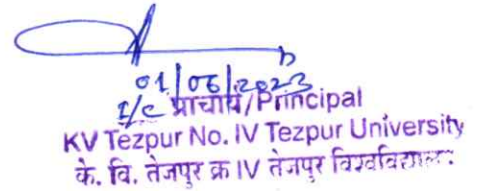 01/06/2023
I/C प्राचार्य/Principal
KV Tezpur No. IV Tezpur University
के. वि. तेजपुर क्र IV तेजपुर विश्वविद्यालय